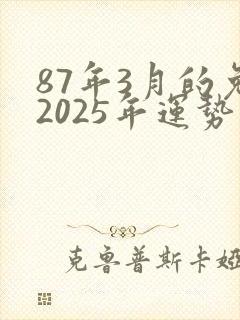 87年3月的兔
2025年運势
克鲁普斯卡娅